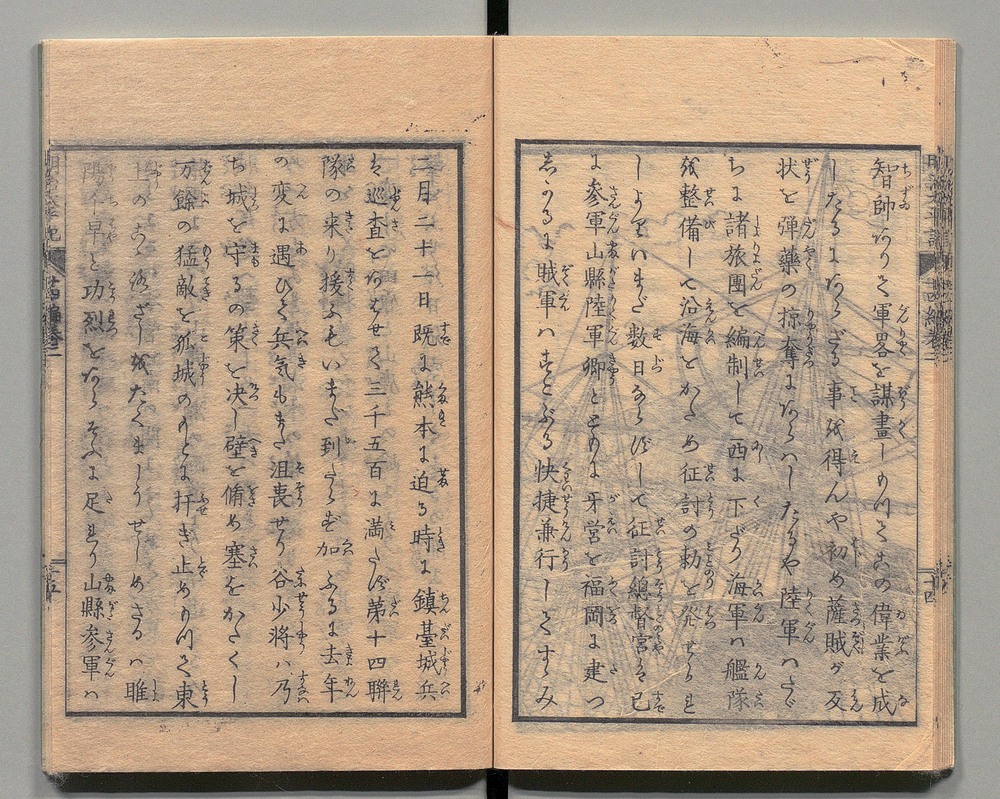 智師ありて軍畧を謀畫しめつるこの偉業を成
したるにあらざる事を得んや初め薩賊が反
状を弾藥の掠奪にあらハしたるや陸軍ハたゞ
ちに諸旅團を編制して西に下だり海軍ハ艦隊
を整備して沿海をかため征討の勅を発せられ
しよりいまだ数日ならずして征討總督宮は已
に参軍山縣陸軍卿とともに牙営を福岡に建つ
しかるに賊軍ハすこぶる快捷兼行してすゝみ
二月二十一日既に熊本に迫る時に鎮臺城兵
は巡査をあはせて三千五百に満たず第十四聯
隊の来り援ふもいまだ到たらず加ふるに去年
の変に遇ひて兵気もまた沮喪せり谷少将ハ乃
ち城を守るの策を决し壁を脩め塞をかたくし
万餘の猛敵を孤城のもとに扞ぎ止めつて東
上の路ざしをたくましうせしめざるハ唯
早と功烈をならぶるに足れり山縣参軍ハ
十四
十五